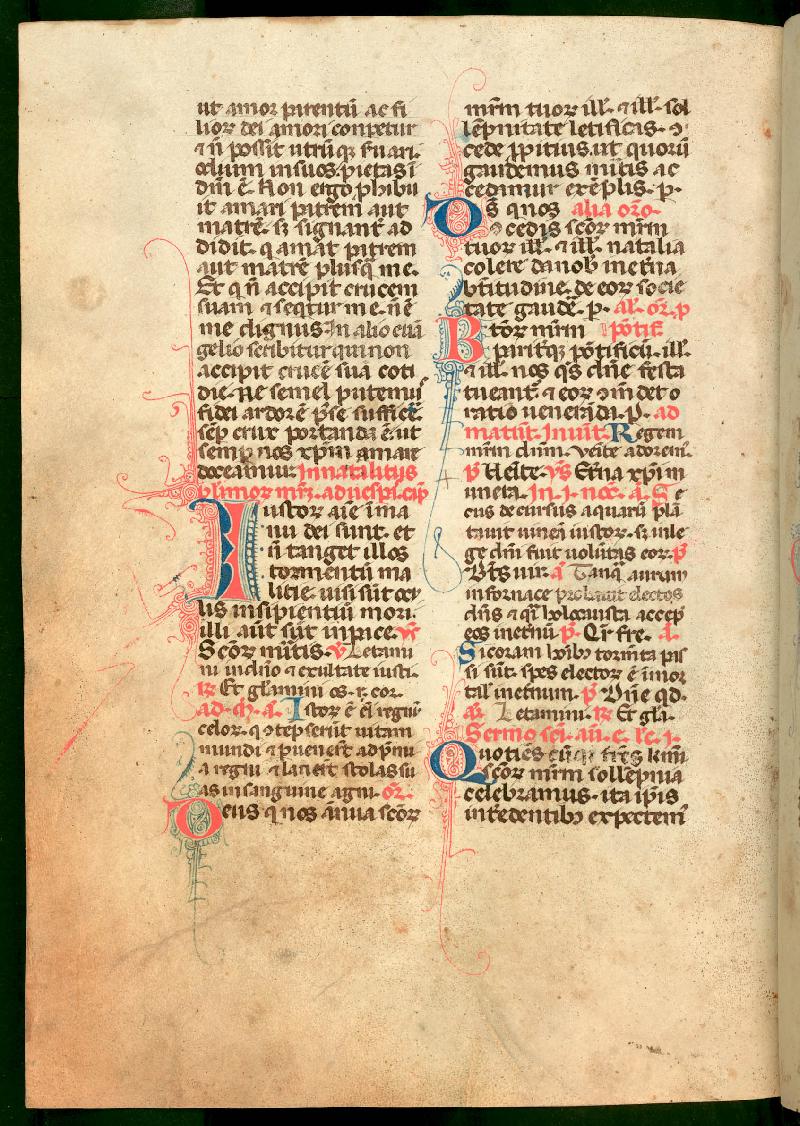 ut amor parentū ac fi
lioꝝ dei amori conpetur
⁊ ñ possit utrūqꝫ suari.
oelum in suos. pietas ī
dm̄ ē. Non ergo ꝓhibu
it amari patrem aut
matrē. sꝫ signant̄ ad
didit. q amat patrem
aut matrē plusq̄ me.
Et q ñ accipit crucem
suam ⁊ seqtur me. ñ ē
me dignus. In alio euā
gelio scribitur qui non
accipit crucē suā coti
die. ne semel putemus
fidei ardorē p̄se suffice.
sēp crux portanda ē. ut
semp nos xp̄m amare
doceamur. In natalitiis
plimoꝝ mr̄. ad uesp̄. cap̄
Iustoꝝ aīe ī ma
nu dei sunt. et
ñ tanget illos
tormentū ma
litie. uisi sūt oc̄
lis insipientiū mori.
illi aūt sūt in pace. ꝶ
Scōꝝ mītis. ꝟ Letami
ni in dn̄o ⁊ exultate iusti.
ꝶ Et gl̄amini os. r. cor.
ad. m̄. a. Istoꝝ ē ēī regnū
celoꝝ. q ↄtēpserūt uitam
mundi ⁊ puenert̄ ad p̄mia
a regni ⁊ lauert̄ stolas su
as in sanguine agni. or̄.
Deus q nos ānua scōꝝ
mr̄m tuoꝝ ill̄. ⁊ ill̄. sol
lēpnitate letificas. ↄ
cede ꝓpitius. ut quoꝝ
gaudemus m̄itis ac
cedamur exēplis. p.
Ds̄ quos alia or̄o.
ↄcedis scōꝝ mr̄m
tuoꝝ ill̄. ⁊ ill̄. natalia
colere da nob̄ in et̄na
b̄titudine. de eoꝝ socie
tate gaudē. p. al̄. or̄. p
Btōꝝ mr̄m pōtif̄
pariterqꝫ pōtificū. ill̄.
⁊ ill̄. nos qs̄ dn̄e festa
tueant̄. ⁊ eoꝝ ↄm̄det o
ratio uenerāda. p. ad
matut̄. Inuit̄. Regem
mr̄m dūm. venite adorem̄.
p̄ Uenite. ys̄ Et̄na xp̄i m
uneta. In. j. noc̄. a. Se
cus decursus aquarū plā
tauit uineā iustoꝝ. ⁊ in le
ge dn̄i fuit uolūtas eoꝝ. p̄
B̄ts uir. a Tanq̄ aurum
in fornace probauit electos
dn̄s ⁊ q̄i holocausta accep̄
eos in et̄nū p̄. Qr̄ fre. a.
Si coram hoībꝫ tormēta pas
si sūt. spes electoꝝ ē īmor
tal̄ in et̄num. p̄ Dn̄e qd.
ꟴ. Letamini. ꝶ Et gl̄a.
Sermo scī. au. e. lc̄. j.
Quotiēs cūqꝫ frēs kmī
scōꝝ mr̄m sollēpnia
celebramus. ita ip̄is
int̄cedentibꝫ expectem̄